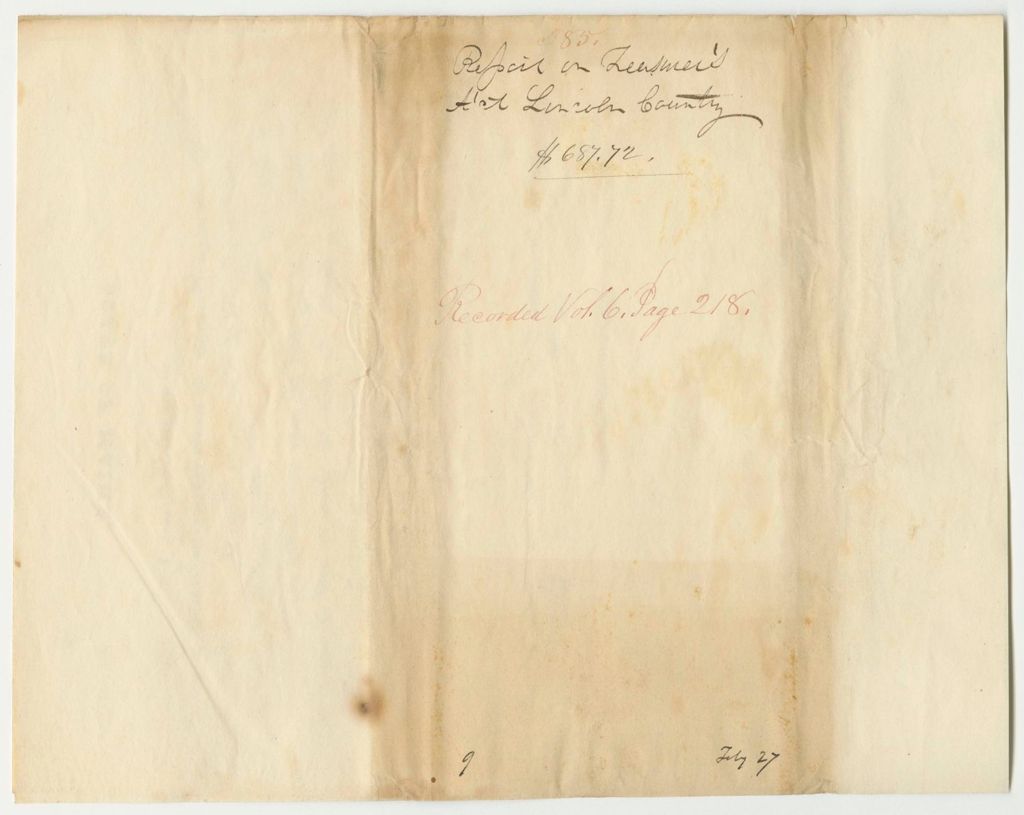 85.
Report on Treasurer's
A/ct Lincoln County
$687.72.
Recorded Vol. 6. Page 218.
9
Feby 27